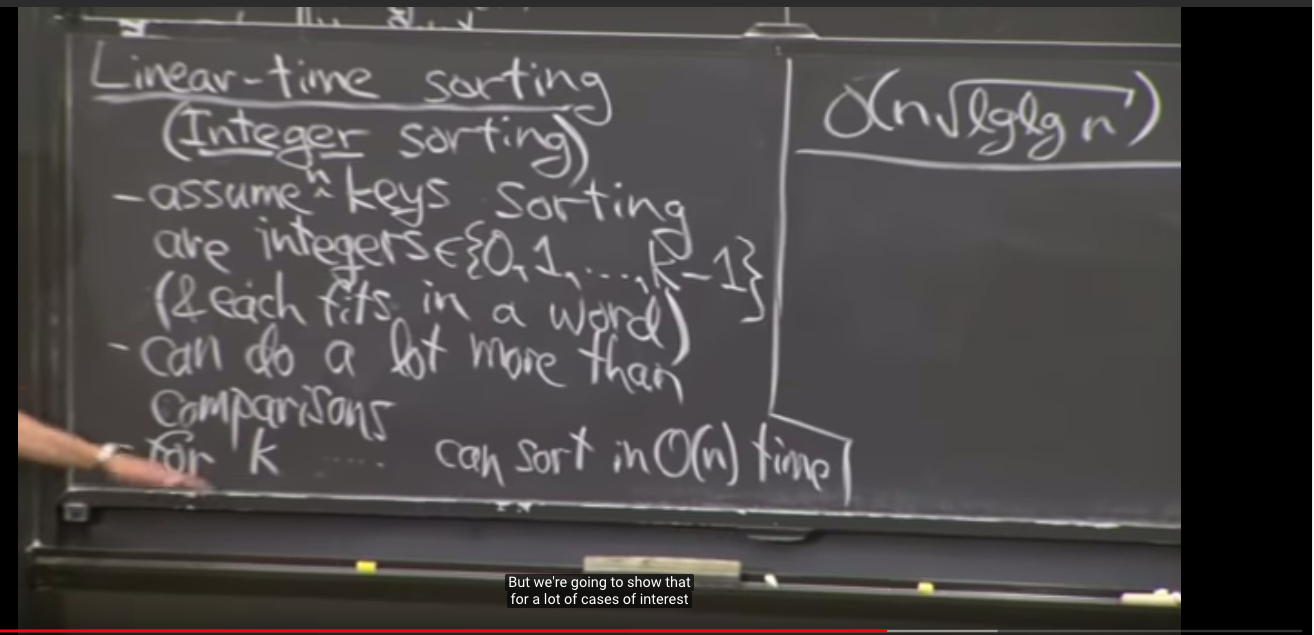 Linear-time sorting
(Integer sorting)
- assume n keys sorting
are integers ∈ {0,1,...,k-1}
(& each fits in a word)
- can do a lot more than
comparisons
- for k .... can sort in O(n) time
O(n√lglg n)
But we're going to show that
for a lot of cases of interest